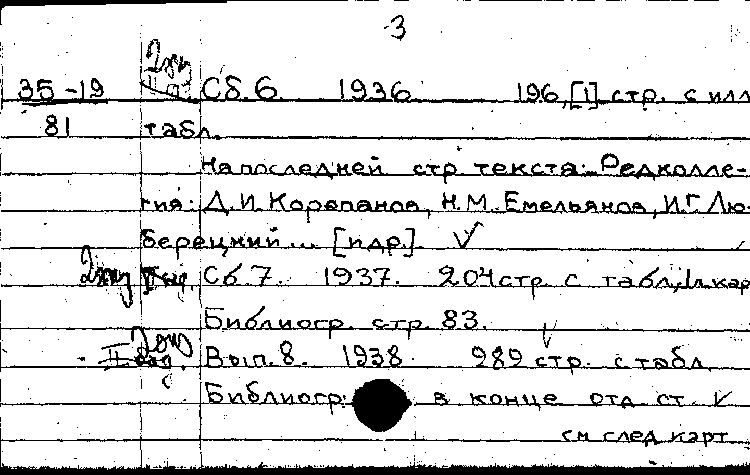 3
35-19 Сб. 6. 1936. 196, [1] стр. с илл
81 табл.
На последней стр. текста: Редколле-
гия: Д.И. Карапанов, Н.М. Емельянов, И.Г. Лю-
берецкий... [и др.]. V
Сб. 7. 1937. 204 стр. с табл., 1 л. кар
Библиогр. стр. 83.
Вып. 8. 1938. 289 стр. с табл.
Библиогр. в конце отд. ст. V
см след карт